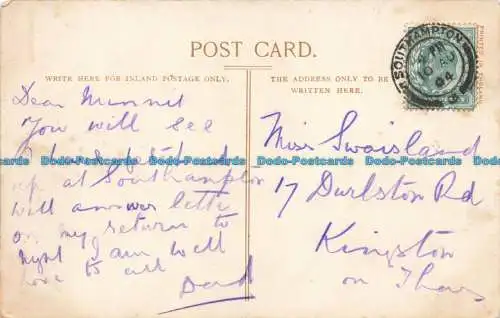 POST CARD.
WRITE HERE FOR INLAND POSTAGE ONLY.
THE ADDRESS ONLY TO BE
WRITTEN HERE.
SOUTHAMPTON
AU
04
Dear Minnie
You will see
I have
up at Southampton
will answer letter
on my return to
night I am well
love to all
Dad
Miss Swaisland
17 Durlston Rd
Kingston
on Thames
Dado-Postcards.com Dado-Postcards.com Dado-Postcards.com Dado-Postcards.com